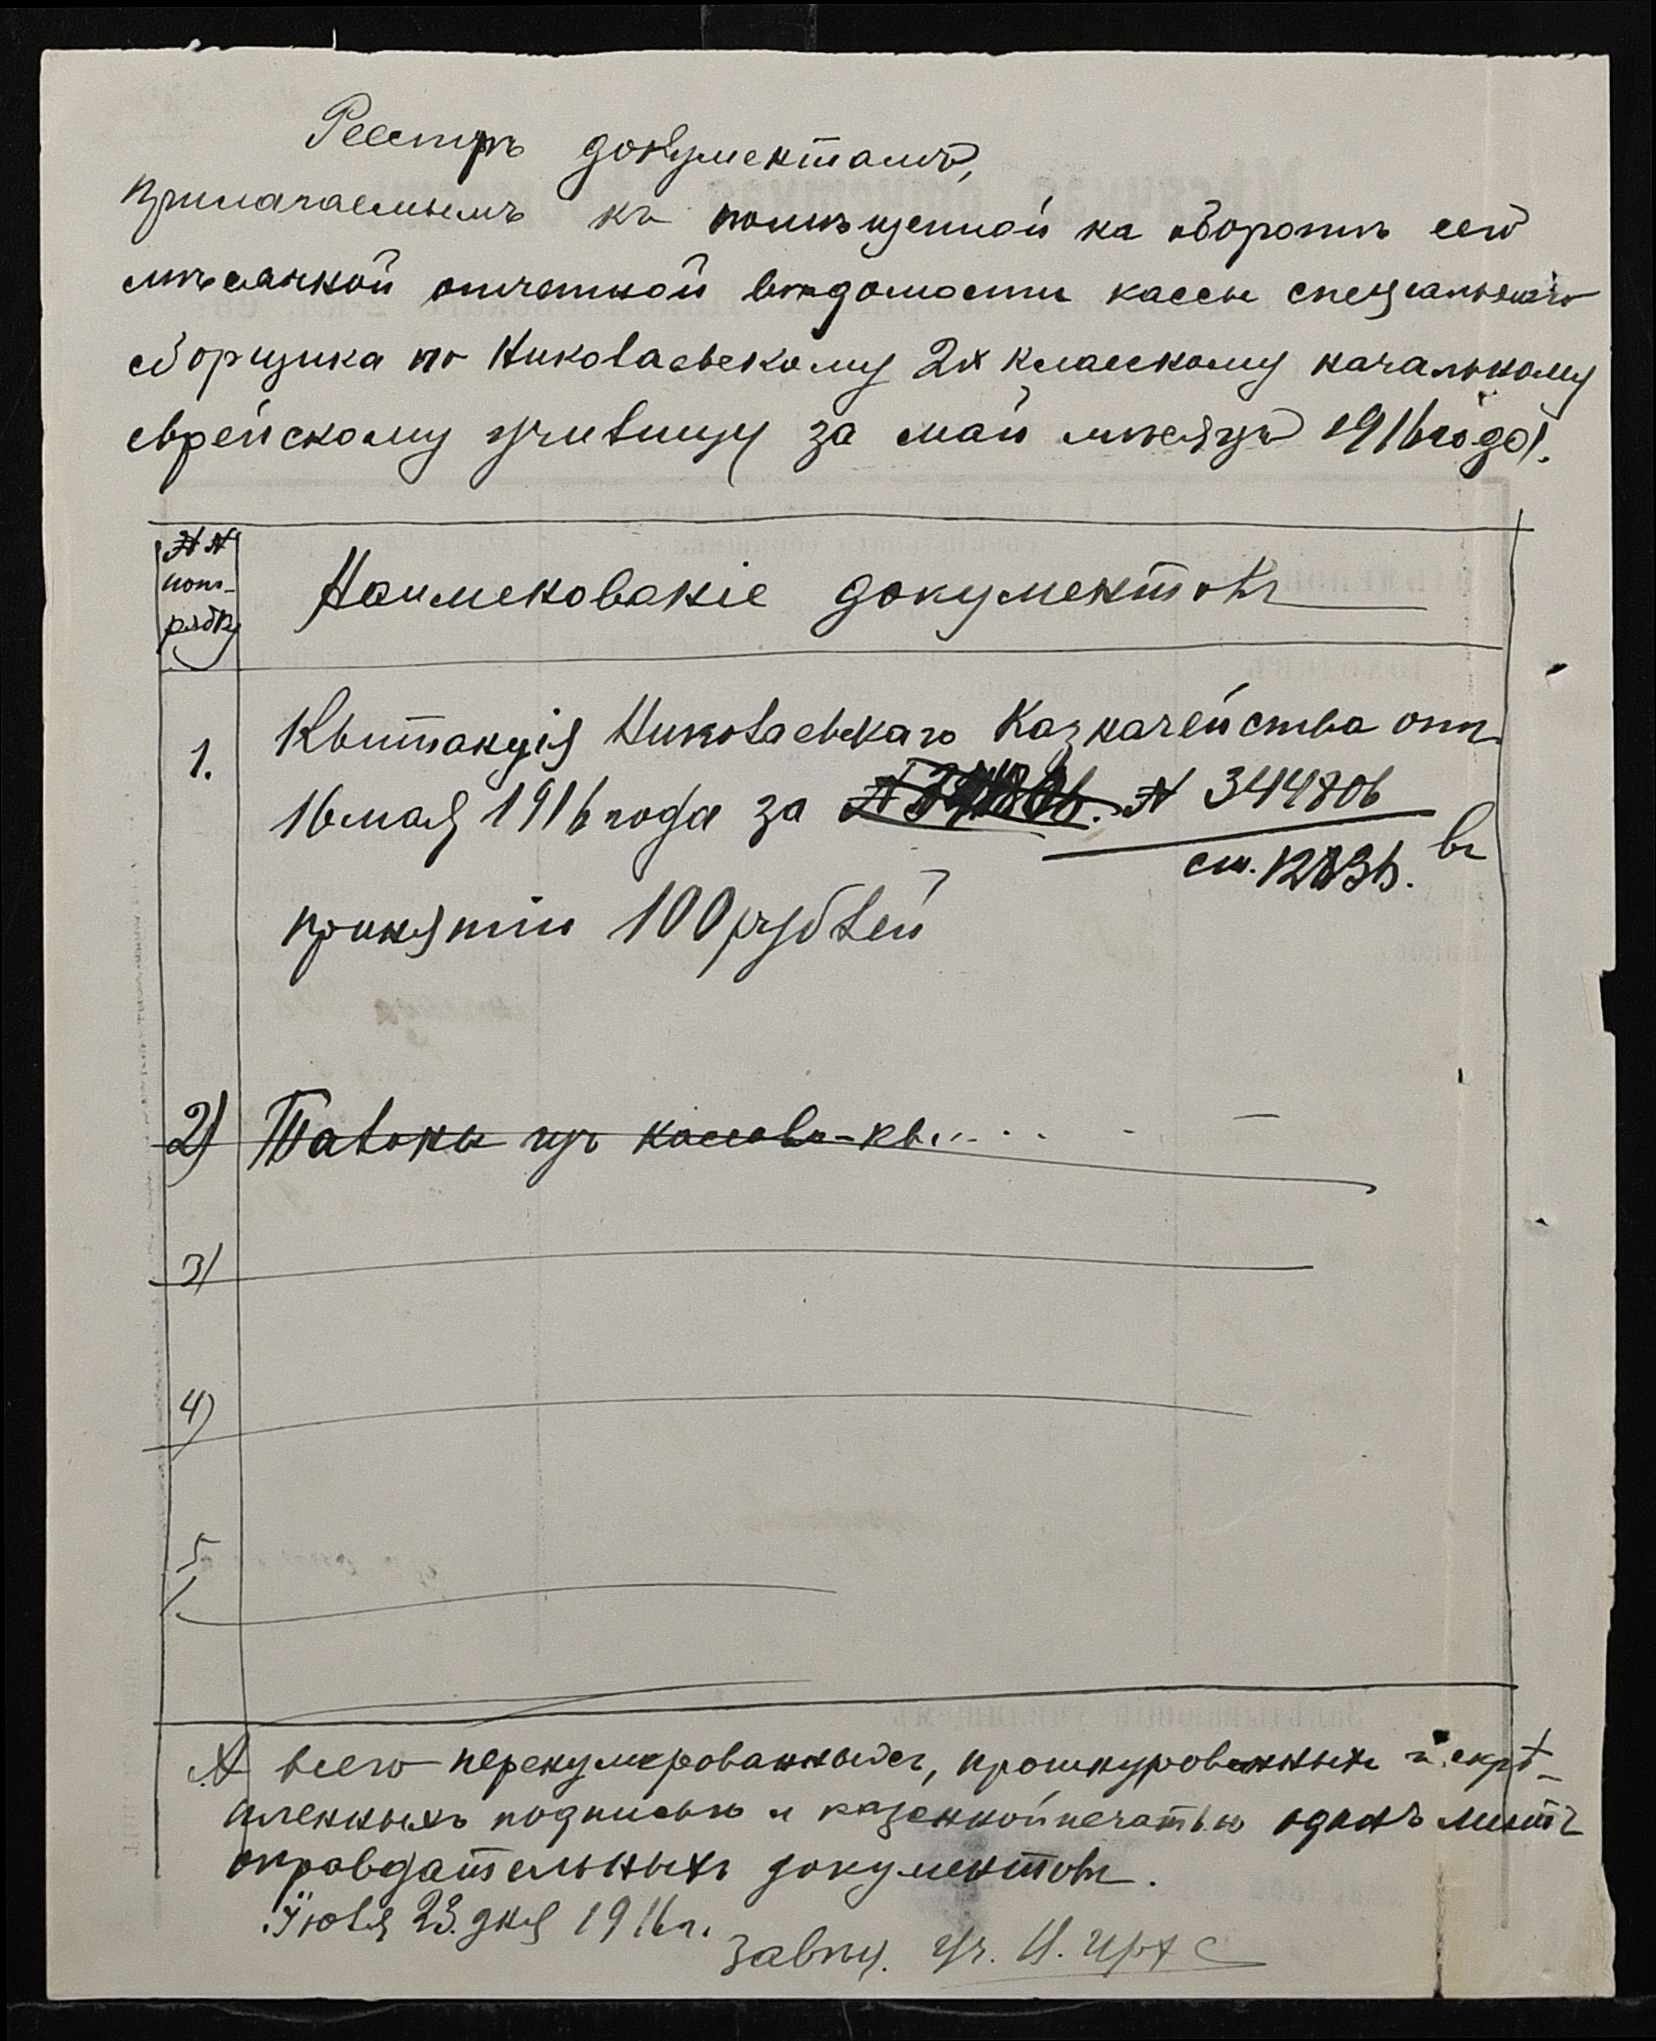 Реестръ документамъ,
прилагаемымъ къ помѣщенной на оборотѣ сего
мѣсячной отчетной вѣдомости кассы спеціальнаго
сборщика по Николаевскому 2х классному начальному
еврейскому училищу за май мѣсяцъ 1916 года.
№ №
поп-
рядку
Наименованіе документовъ
1.
Квитанція Николаевскаго Казначейства отъ
16 мая 1916 года за № 344806
ст. 12836. въ
принятіи 100 рублей
2) Талоны изъ кассово-кв.....
3)
4)
5
А всего перенумерованныхъ, прошнурованныхъ и скрѣ-
пленныхъ подписью и казенной печатью одинъ листъ
оправдательныхъ документовъ.
Іюля 23 дня 1916 г.